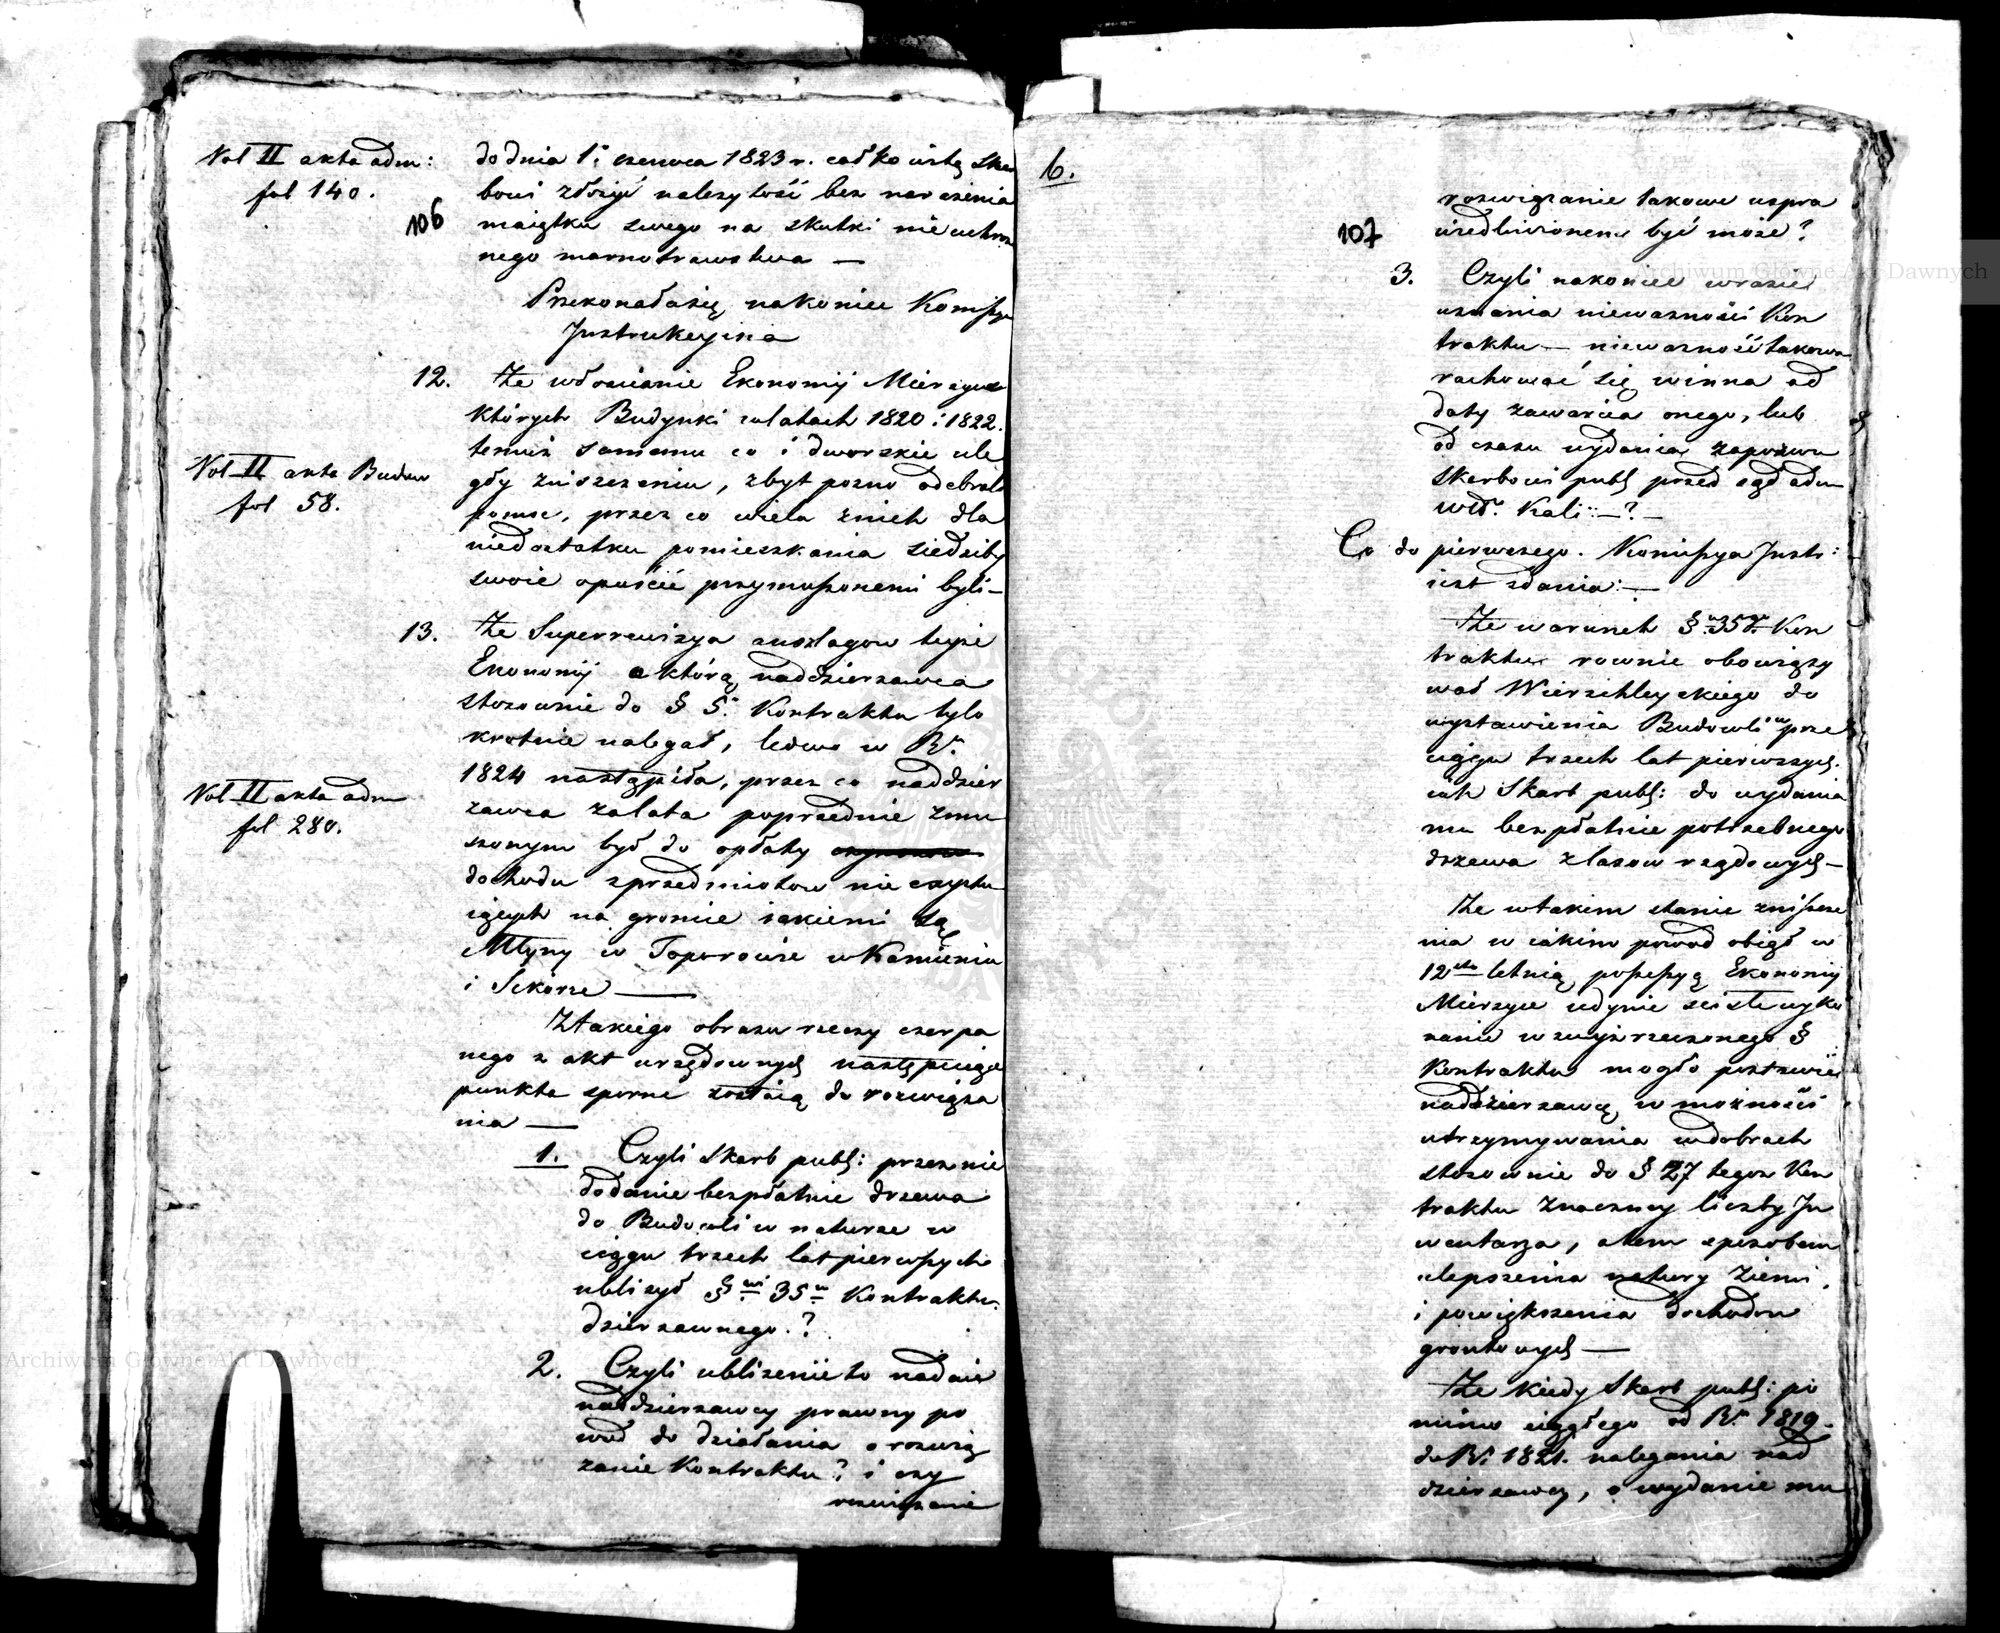 Vol II akta adm:
fol 140.
106
do dnia 1: czerwca 1823 r. całkowitą Skar
bowi złożyć należytość bez narażenia
maiątku swego na skutki nieuchron
nego marnotrawstwa —
Przekonała się nakoniec Komissya
Instrukcyina
12. że włościanie Ekonomij Mierzyce
których Budynki w latach 1820 i 1822.
temuż samemu co i dworskie ule
gły zniszczeniu, zbyt pozno odebrali
Vol II akta Budow
fol 58.
pomoc, przez co wielu znich dla
niedostatku pomieszkania siedziby
swoie opuścić przymuszonemi byli —
13. że Superrewizya anszlagow teyże
Ekonomij o którą naddzierzawca
stosownie do § 5. Kontraktu tylo
krotnie nalegał, ledwo w Rr.
1824 nastąpiła, przez co naddzier
Vol II akta adm
fol 280.
zawca zalata poprzednie zmu
szonym był do opłaty
dochodu zprzedmiotow nie exystu
iących na gromie iakiemi są
Młyny w Toporowie w Kamieniu
i Sikorze —
Ztakiego obrazu rzeczy czerpa
nego z akt urzędownych następuiące
punkta sporne zostaią do rozwiąza
nia —
1. Czyli Skarb publ: przez nie
dodanie bezpłatnie drzewa
do Budowli w naturze w
ciągu trzech lat pierwszych
ubliżył §wi 35u Kontraktu
dzierzawnego?
2. Czyli ubliżenie to nadaie
naddzierzawcy prawny po
wod do działania o rozwią
zanie Kontraktu? i czy
rozwiązanie
6.
107
rozwiązanie takowe uspra
wiedliwionem być może?
3. Czyli nakoniec w razie
uznania nieważności Kon
traktu — nieważność takowa
rachować się winna od
daty zawarcia onego, lub
od czasu wydania zapozwu
Skarbowi publ przed sąd adm
wdł. Kali: —? —
Co do pierwszego. Komissya Instr:
iest zdania: —
że warunek § 35go Kon
traktu rownie obowiązy
wał Wierzchleyskiego do
wystawienia Budowli w prze
ciągu trzech lat pierwszych.
iak Skarb publ: do wydania
mu bezpłatnie potrzebnego
drzewa z lasow rządowych —
że w takim stanie zniszcze
nia w iakim powod obiął w
12sto letnią possessyą Ekonomiy
Mierzyce iedynie scisłe wyko
nanie w zwyż rzeczonego §
Kontraktu mogło postawić
naddzierzawcę w możności
utrzymywania w dobrach
stosownie do § 27 tegoż Kon
traktu znaczney liczby In
wentarza, a tem sposobem
ulepszenia natury Ziemi
i powiększenia dochodow
grontowych —
że kiedy Skarb publ: po
mimo ciągłego od Rr 1819.
do Rr 1821. nalegania nad
dzierzawcy, o wydanie mu
Archiwum Główne Akt Dawnych
Archiwum Główne Akt Dawnych